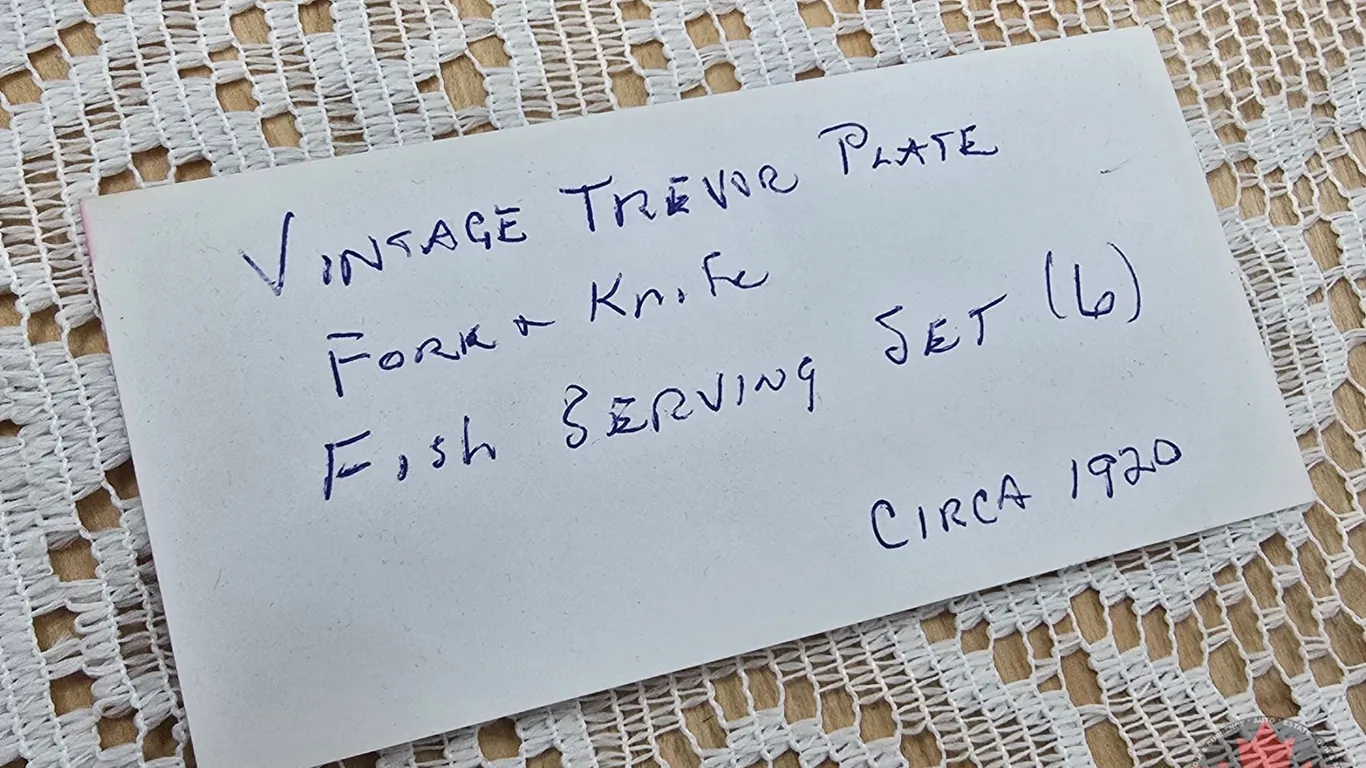 VINTAGE TREVOR PLATE
FORK & KNIFE
FISH SERVING SET (6)
CIRCA 1920
AUTO · ESTATE